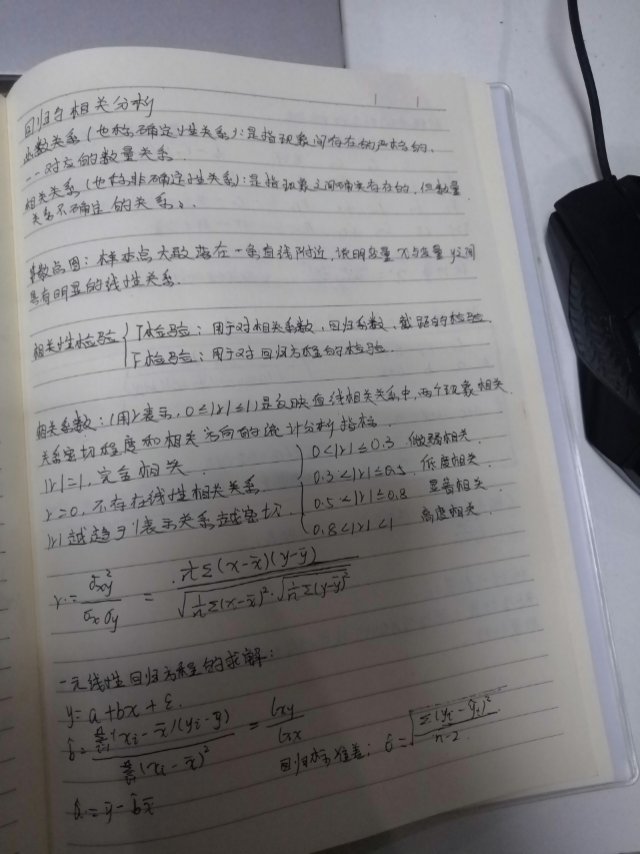 回归与相关分析
函数关系(也称确定性关系):是指现象间存在的严格的、
一一对应的数量关系.
相关关系(也称非确定性关系):是指现象之间确实存在的,但数量
关系不确定的关系。
散点图:样本点大致落在一条直线附近,说明变量x与变量y之间
具有明显的线性关系.
相关性检验 { T检验:用于对相关系数、回归系数、截距的检验.
F检验:用于对回归方程的检验.
相关系数:(用r表示,0≤|r|≤1)是反映直线相关关系中,两个现象相关
关系密切程度和相关方向的统计分析指标.
|r|=1,完全相关. 0<|r|≤0.3 微弱相关.
r=0,不存在线性相关关系. 0.3<|r|≤0.5 低度相关.
|r|越趋于1表示关系越密切. 0.5<|r|≤0.8 显著相关.
0.8<|r|<1 高度相关.
r = σ²xy / σx σy = 1/n Σ(x-x̄)(y-ȳ) / √(1/n Σ(x-x̄)²) · √(1/n Σ(y-ȳ)²)
一元线性回归方程的求解:
y = a + bx + ε.
b̂ = Σ(xi - x̄)(yi - ȳ) / Σ(xi - x̄)² = Lxy / Lxx
回归标准差: σ̂ = √(Σ(yi - ŷi)² / n-2)
â = ȳ - b̂x̄